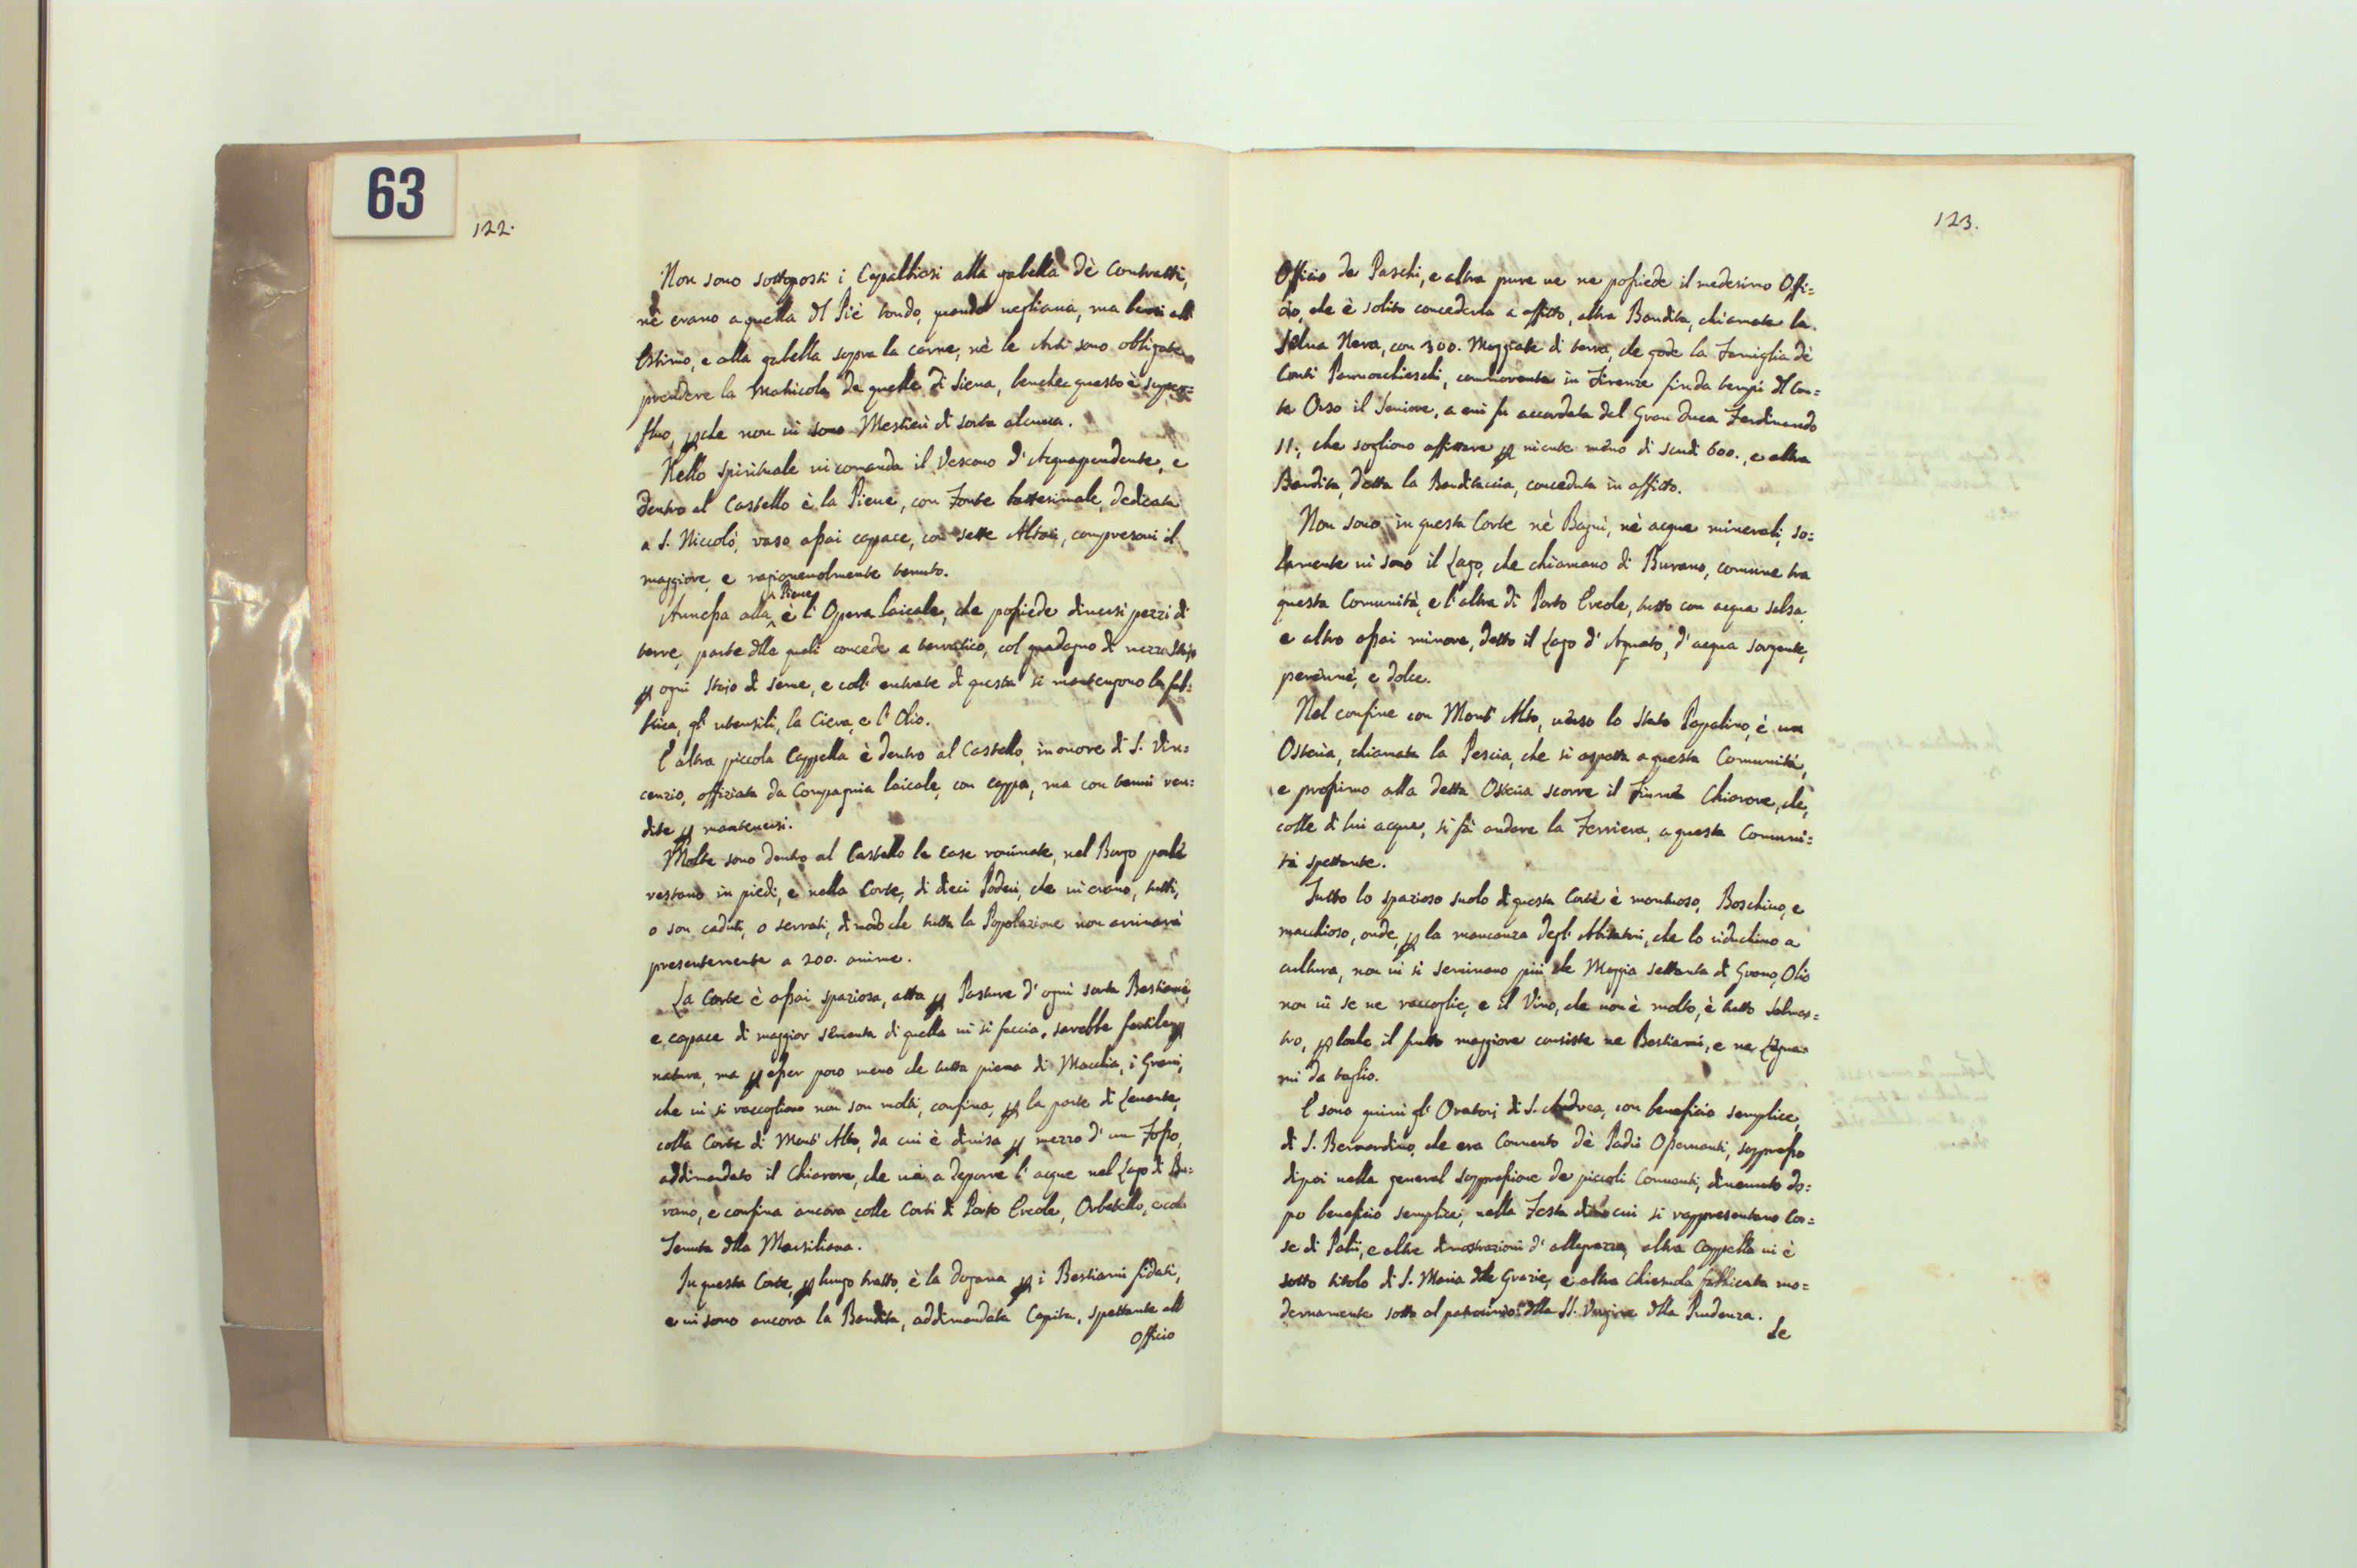 63
122.
Non sono sottoposti i Capalbiesi alla gabella dè Contratti,
nè erano a quella dl Piè tondo, quando uegliaua, ma bensì all'
Estimo, e alla gabella sopra la carne, nè le Arti sono obligate a
prendere la Matricola da quelle di Siena, benche questo è super=
fluo, pche non ui sono Mestieri di sorta alcuna.
Nello spirituale ui comanda il Vescouo d'Acquapendente, e
dentro al Castello è la Pieue, con Fonte battesimale, dedicata
a S. Niccolò, vaso assai capace, con sette Altari, compresoui il
maggiore, e ragioneuolmente tenuto.
Pieue
Annessa alla è l'Opera laicale, che possiede diuersi pezzi di
terre, parte dlle quali concede a terratico, col guadagno di mezzo Staio
p ogni Staio di seme, e coll' entrate di questa si mantengono la fab=
brica, gl'utensili, la Ciera, e l'Olio.
L'altra piccola Cappella è dentro al Castello, in onore di S. Vin=
cenzio, offiziata da Compagnia laicale, con cappa, ma con tenui ren=
dite p mantenersi.
Molte sono dentro al Castello le case rouinate, nel Borgo poche
restano in piedi, e nella Corte, di dieci Poderi, che ui erano, tutti,
o son caduti, o serrati, di modo che tutta la Popolazione non arriuerà
presentemente a 200. anime.
La Corte è assai spaziosa, atta p Pasture d'ogni sorta Bestiame,
e capace di maggior sementa di quella ui si faccia, sarebbe fertile p
natura, ma p esser poco meno che tutta piena di Macchia, i Grani,
che ui si raccogliono non son molti, confina, p la parte di Leuante,
colla Corte di Mont'Alto, da cui è diuisa p mezzo d'un Fosso,
addimandato il Chiarone, che uà a deporre l'acque nel Lago di Bu=
rano, e confina ancora colle Corti di Porto Ercole, Orbetello, e colla
Tenuta dlla Marsiliana.
In questa Corte, p lungo tratto, è la Dogana p i Bestiami fidati,
e ui sono ancora la Bandita, addimandata Capita, spettante all'
Officio
123.
Officio de Paschi, e altra pure ue ne possiede il medesimo Offi=
cio, che è solito concederla a affitto, altra Bandita, chiamata la
Selua Nera, con 300. Moggiate di terra, che gode la Famiglia dè
Conti Pannocchieschi, commorante in Firenze fin da tempi dl Con=
te Orso il Seniore, a cui fu accordata dal Gran Duca Ferdinando
II., che sogliono affittare p niente meno di scudi 600., e altra
Bandita, detta la Banditaccia, conceduta in affitto.
Non sono in questa Corte nè Bagni, nè acque minerali, so=
lamente ui sono il Lago, che chiamano di Burano, comune tra
questa Comunità, e l'altra di Porto Ercole, tutto con acqua salsa,
e altro assai minore, detto il Lago d'Aquato, d'acqua sorgente,
perenne, e dolce.
Nel confine con Mont'Alto, uerso lo Stato Papalino, è una
Osteria, chiamata la Pescia, che si aspetta a questa Comunità,
e prossimo alla detta Osteria scorre il Fiume Chiarone, che,
colle di lui acque, si fà andare la Ferriera, a questa Comuni=
tà spettante.
Tutto lo spazioso suolo di questa Corte è montuoso, Boschiuo, e
macchioso, onde, p la mancanza degl'Abitatori, che lo riduchino a
cultura, non ui si seminano più che Moggia settanta di Grano, Olio
non ui se ne raccoglie, e il Vino, che non è molto, è tutto Saluas=
tro, p loche il frutto maggiore consiste ne Bestiami, e ne Legna=
mi da taglio.
E sono quiui gl'Oratorj di S. Andrea, con beneficio semplice,
di S. Bernardino, che era Conuento dè Padri Osseruanti, soppresso
dipoi nella general soppressione de piccoli Conuenti, diuenuto do=
po beneficio semplice, nella Festa di cui si rappresentano Cor=
se di Palii, e altre dimostrazioni d'allegrezza, altra Cappella ui è
sotto titolo di S. Maria dlle Grazie, e altra Chiesuola fabbricata mo=
dernamente sotto al patrocinio dlla SS. Vergine dlla Prudenza.
Le